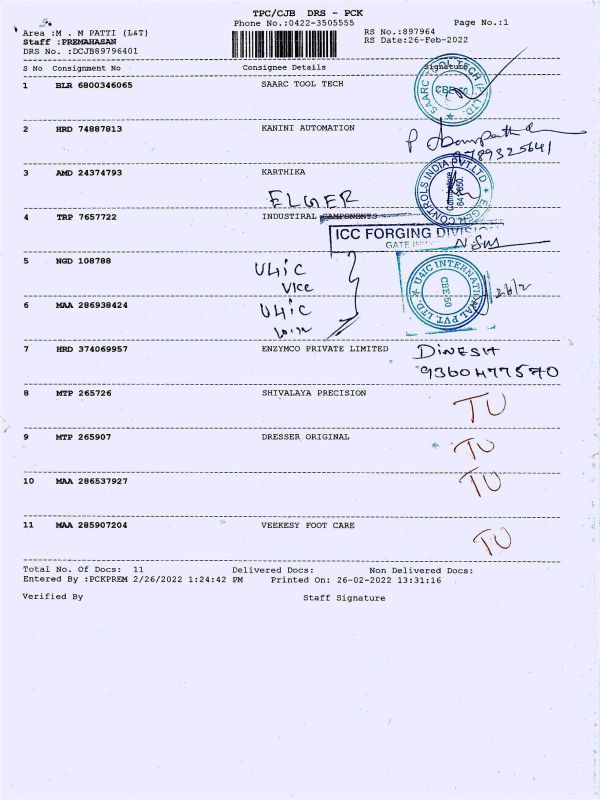 TPC/CJB DRS - PCK
Phone No.:0422-3505555
Page No.:1
Area :M . M PATTI (L&T)
RS No.:897964
Staff :PREMAHASAN
RS Date:26-Feb-2022
DRS No. :DCJB89796401
S No Consignment No Consignee Details Signature
1 BLR 6800346065 SAARC TOOL TECH
SAARC TOOL TECH (P) LTD.
CBE 50
2 HRD 74887813 KANINI AUTOMATION
9789325641
3 AMD 24374793 KARTHIKA
ELGER CONTROLS INDIA PVT LTD
Coimbatore
641 050.
ELGER
4 TRP 7657722 INDUSTIRAL CAMPONENTS
ICC FORGING DIVISION
GATE
5 NGD 108788 U4iC
U4IC INTERNATIONAL PVT. LTD.
CBE 50
26/2
6 MAA 286938424 U4iC
7 HRD 374069957 ENZYMCO PRIVATE LIMITED DINESH
9360477570
8 MTP 265726 SHIVALAYA PRECISION TU
9 MTP 265907 DRESSER ORIGINAL TU
10 MAA 286537927 TU
11 MAA 285907204 VEEKESY FOOT CARE TU
Total No. Of Docs: 11 Delivered Docs: Non Delivered Docs:
Entered By :PCKPREM 2/26/2022 1:24:42 PM Printed On: 26-02-2022 13:31:16
Verified By Staff Signature